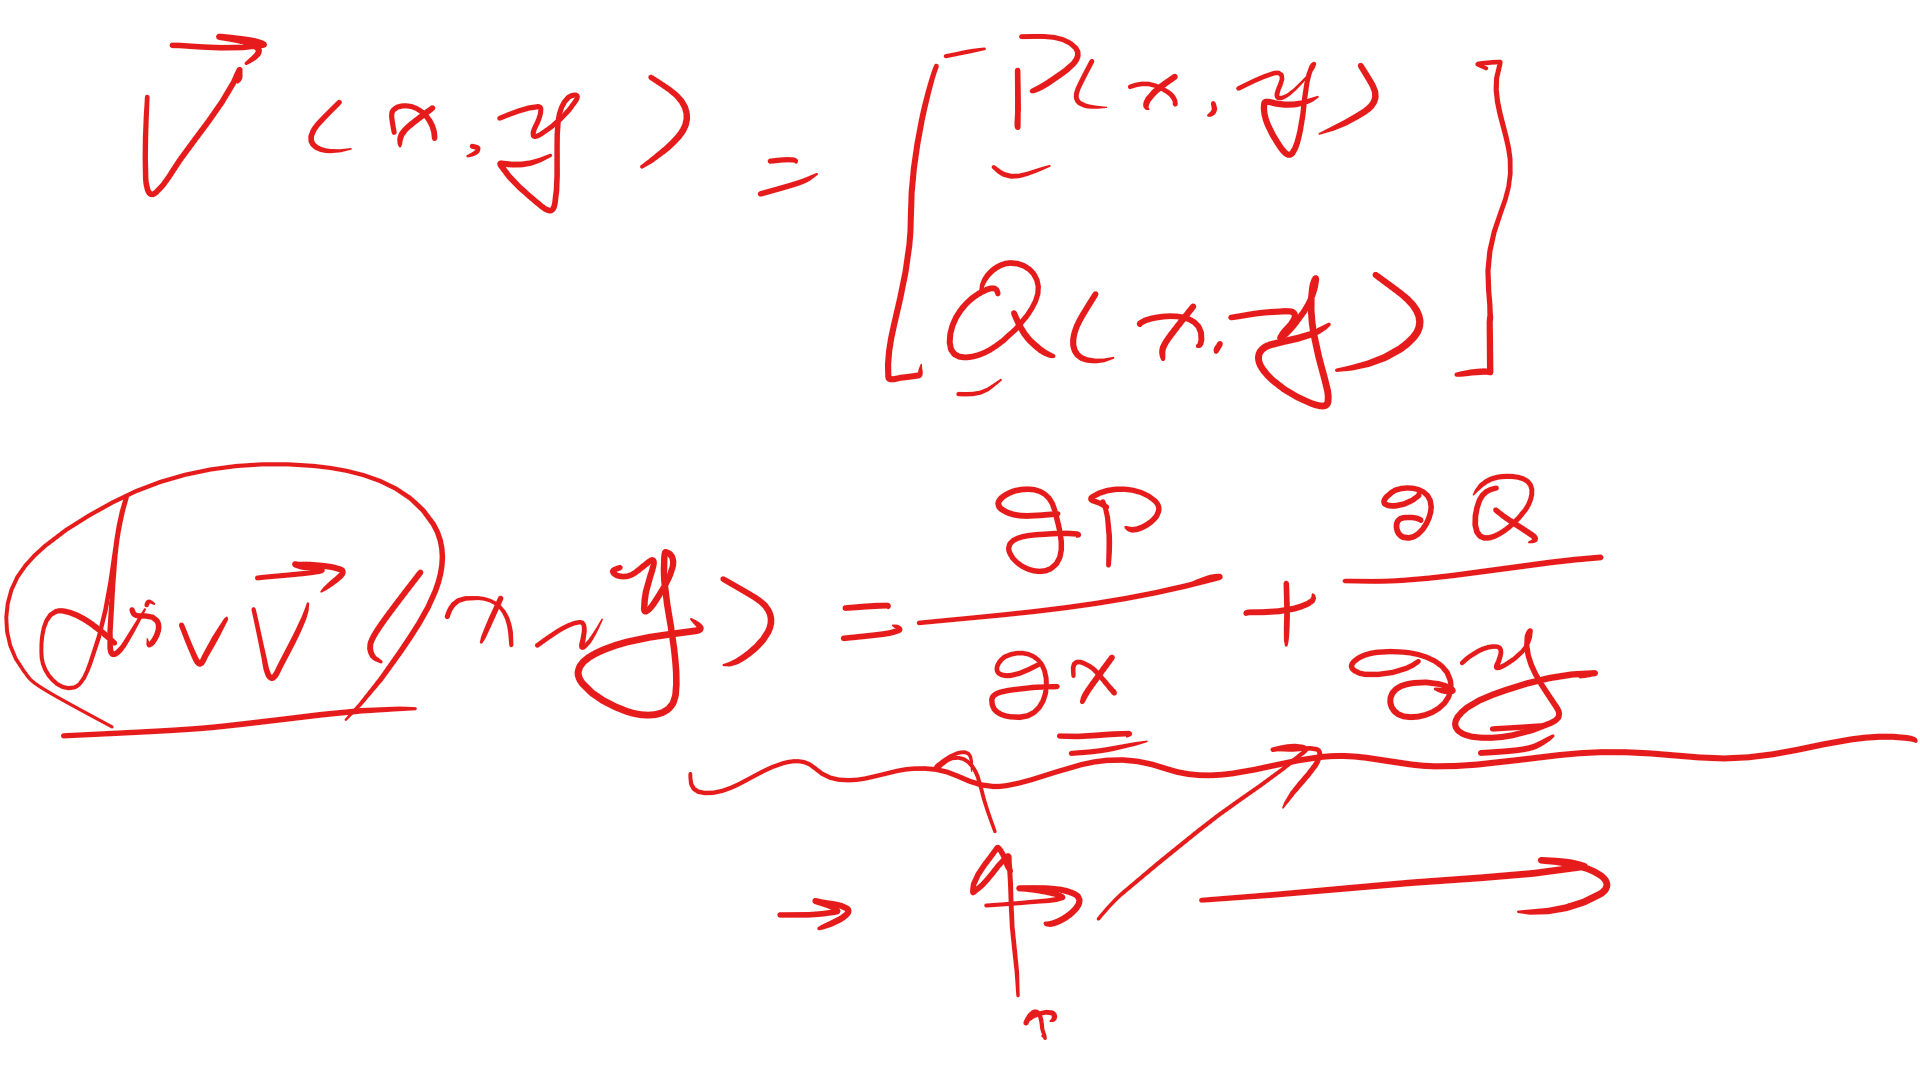 V⃗(x,y) = [P(x,y)
Q(x,y)]
div V⃗(x,y) = ∂P/∂x + ∂Q/∂y